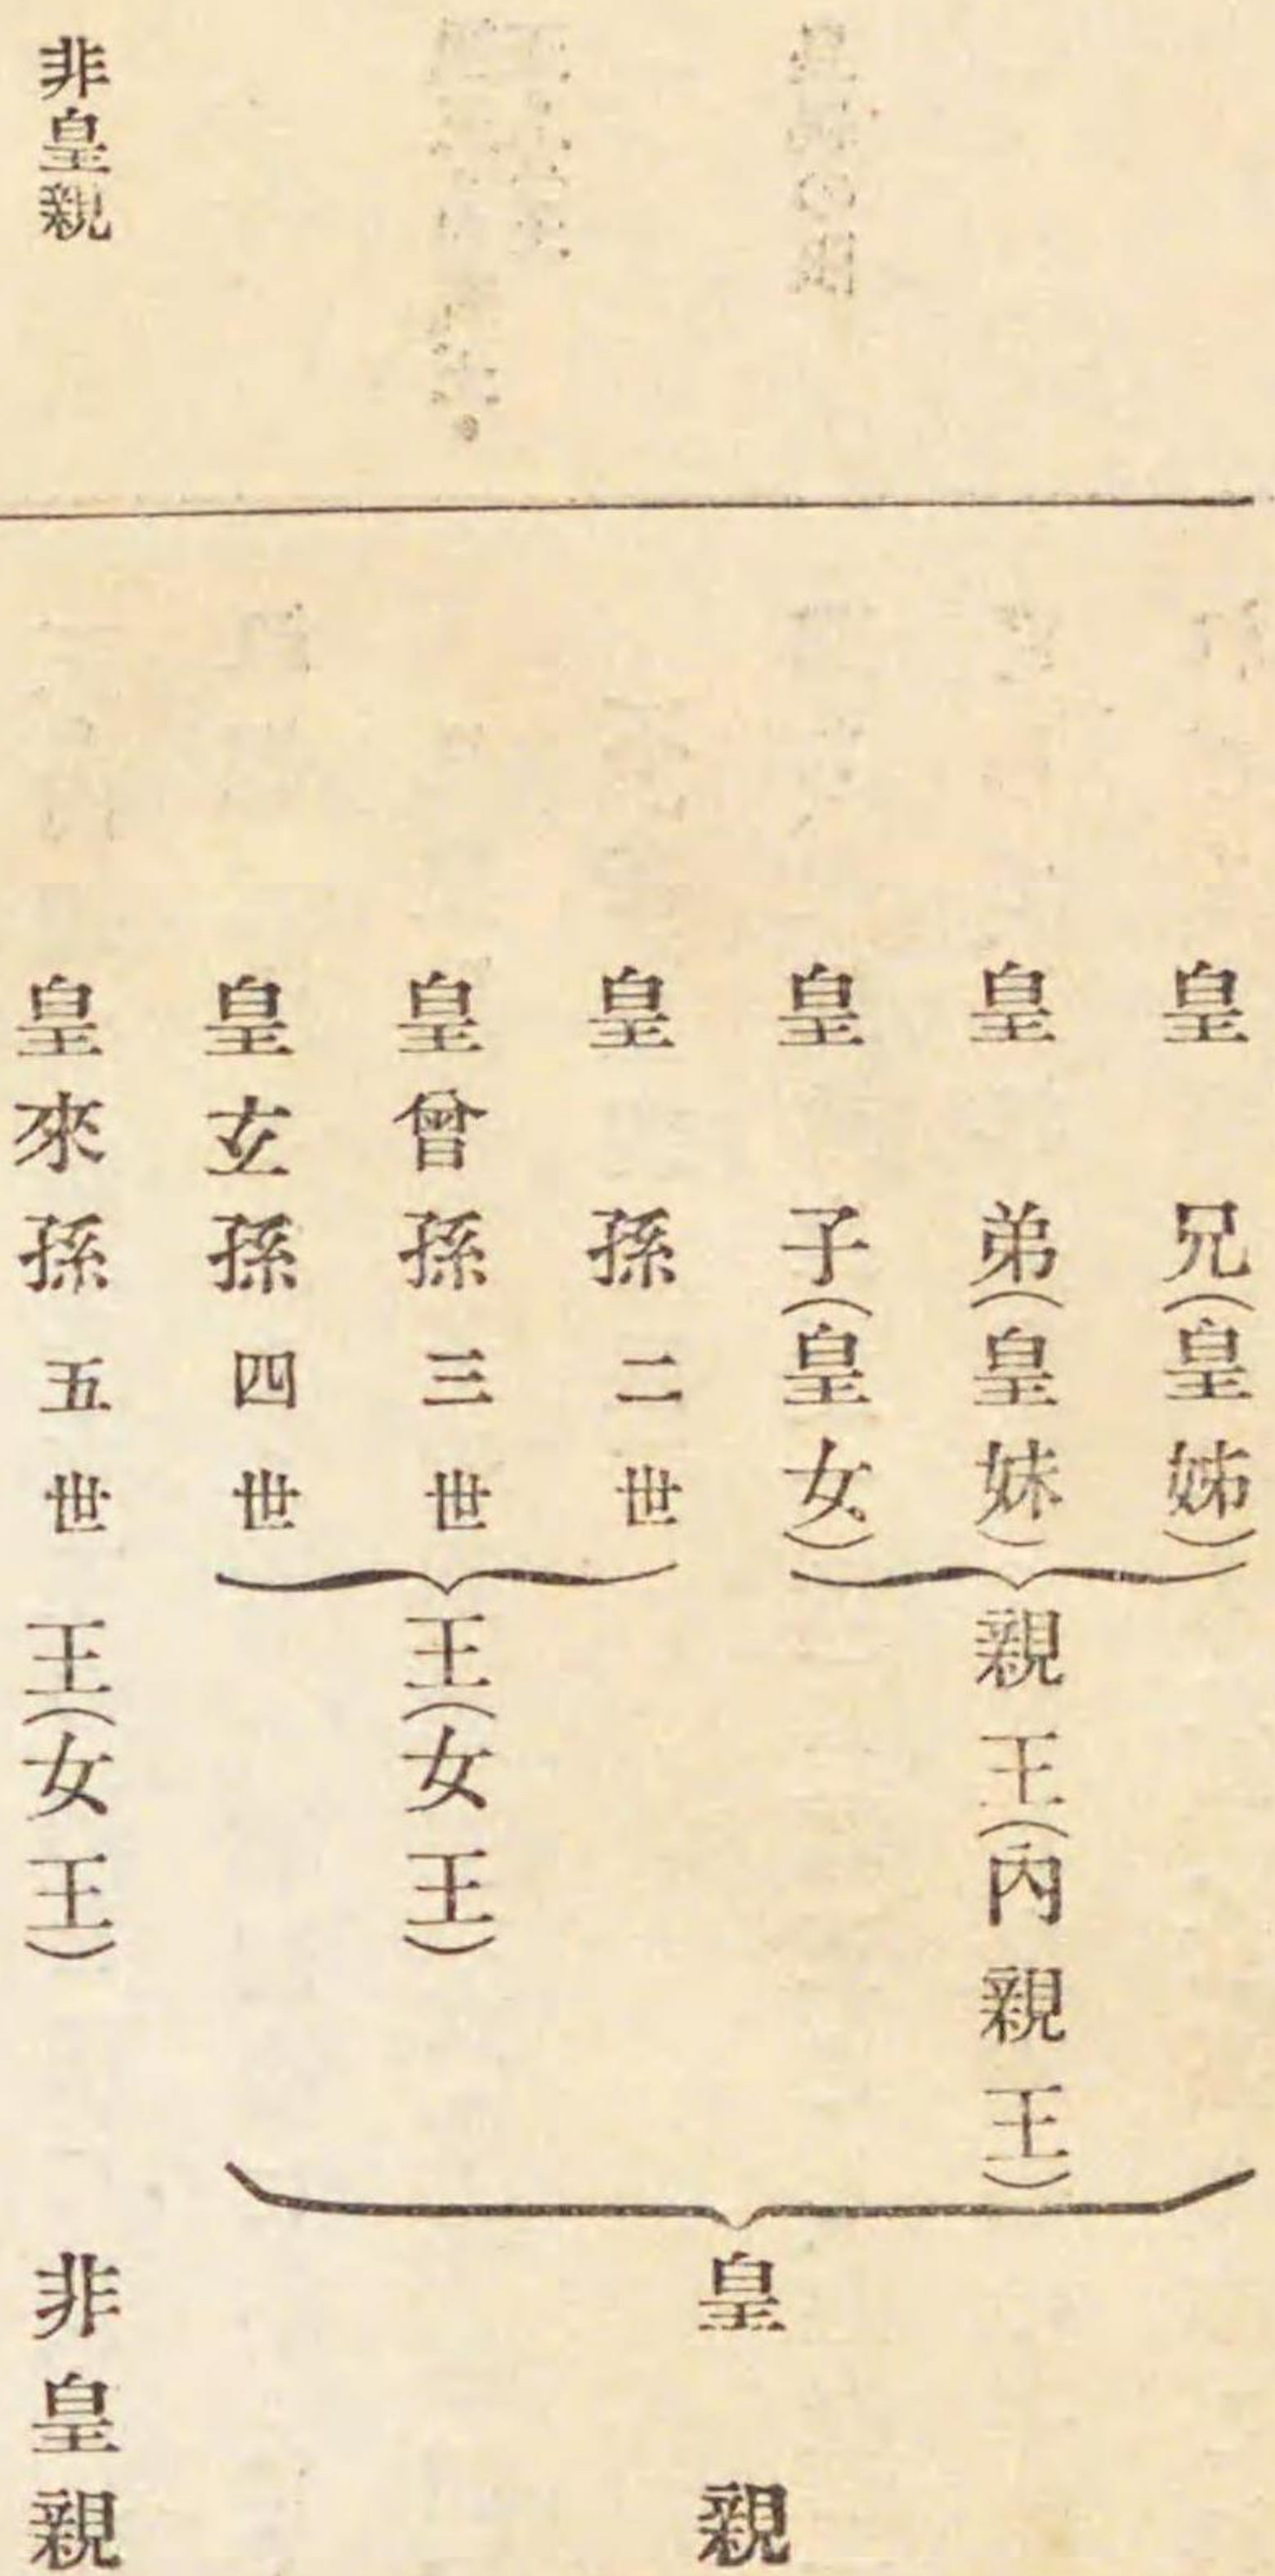 皇兄(皇姊)
皇弟(皇妹)
皇子(皇女)
親王(內親王)
皇孫二世
皇曾孫三世
皇玄孫四世
王(女王)
皇親
非皇親
皇來孫五世王(女王)非皇親